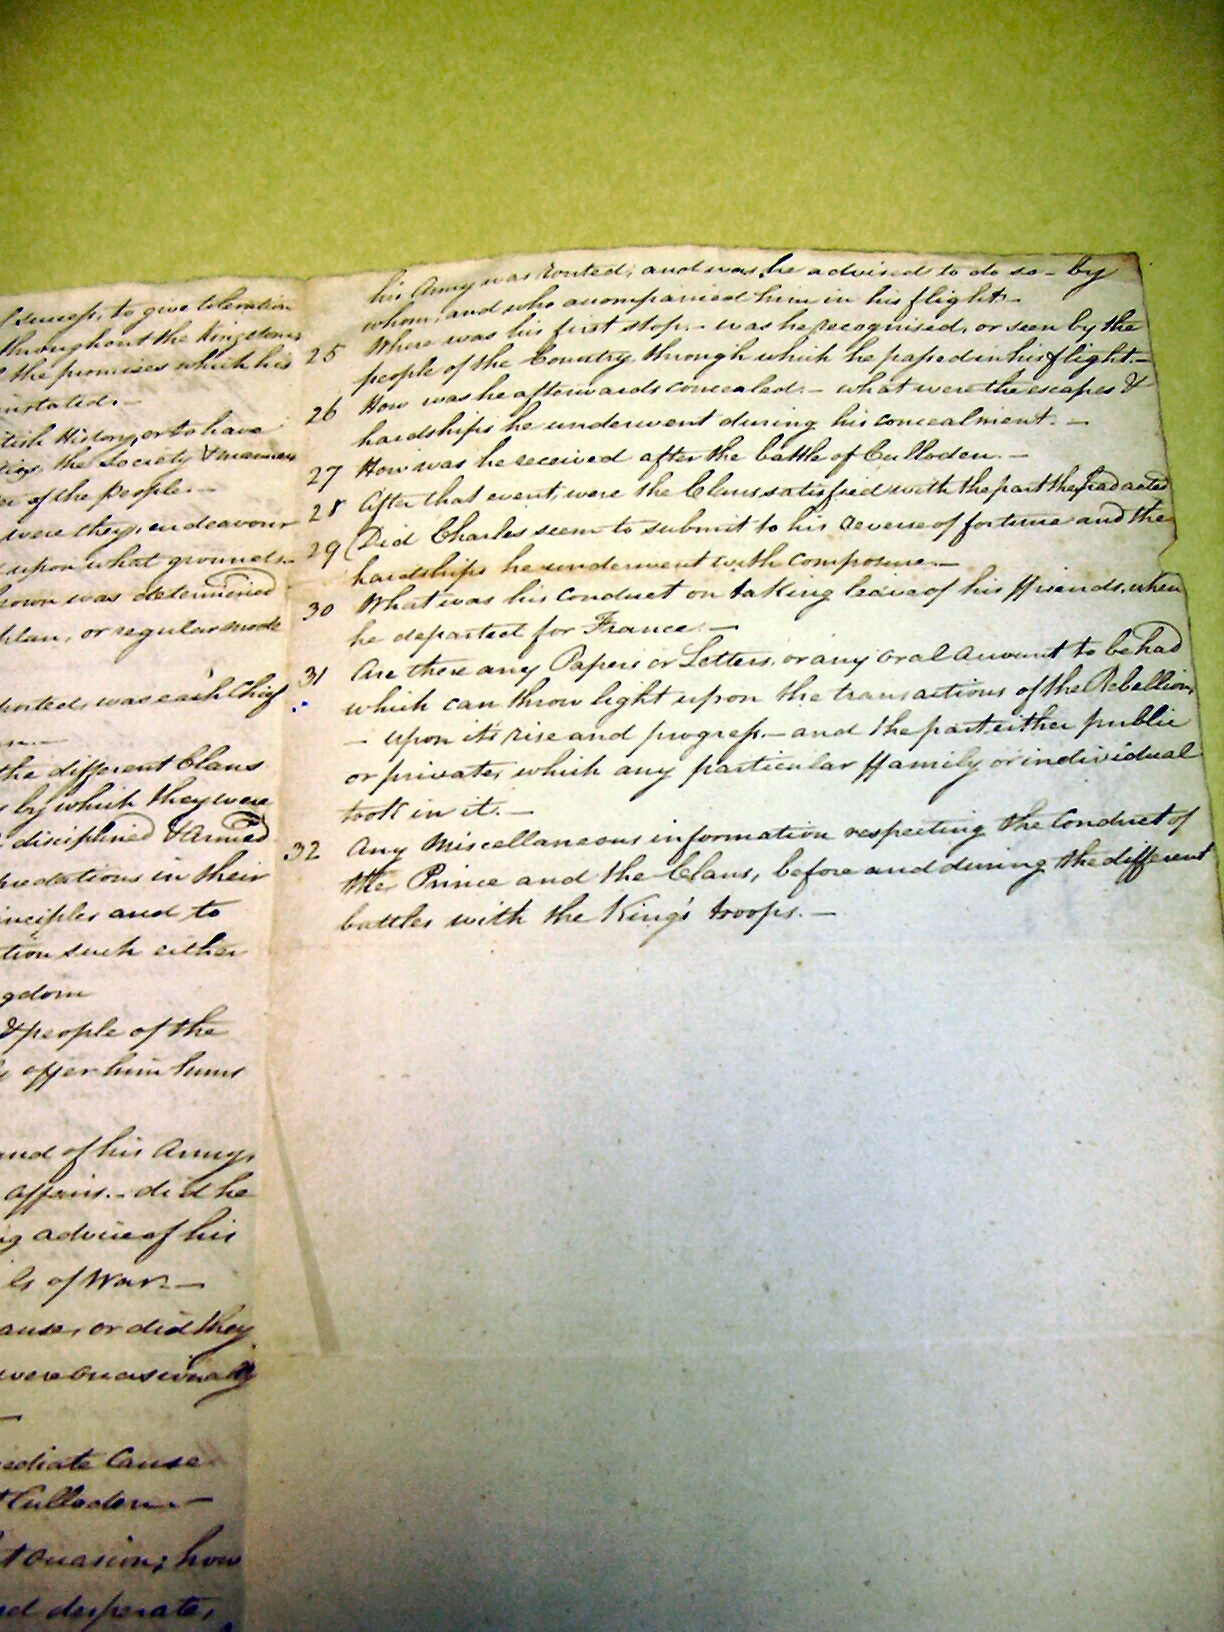 l success, to give toleration
throughout the Kingdoms
the promises which his
nstated.—
tish History, or to have
the Society & manners
er of the People.—
were they, endeavour
upon what grounds.—
rown was determined
plan, or regular mode
ported, was each Chief
n.—
the different Clans
by which they were
disciplined & Armed
predations in their
inciples and to
tion such either
gdom
& people of the
offer him sums
and of his Army,
affairs.- did he
ng advice of his
ls of War.—
ause, or did they
were occasionally
—
ediate Cause
t Culloden.—
t occasion; how
nd desperate,
his Army was routed; and was he advised to do so - by
whom, and who accompanied him in his flight.—
25 Where was his first stop.- was he recognised, or seen by the
people of the Country, through which he passed in his flight.—
26 How was he afterwards concealed.- what were the escapes &
hardships he underwent during his concealment.—
27 How was he received after the battle of Culloden.—
28 After that event, were the Clans satisfied with the part they had acted
29 Did Charles seem to submit to his reverse of fortune and the
hardships he underwent with composure.—
30 What was his conduct on taking leave of his ffriends, when
he departed for France.—
31 Are there any Papers or Letters, or any oral account to be had
which can throw light upon the transactions of the Rebellion,
— upon its rise and progress.— and the part either public
or private, which any particular ffamily or individual
took in it.—
32 Any Miscellaneous information respecting the Conduct of
the Prince and the Clans, before and during the different
battles with the King's troops.—